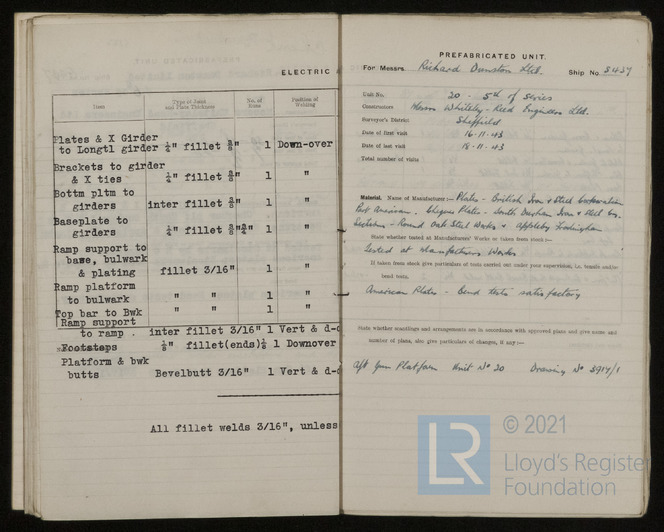 ELECTRIC
Item
Type of Joint and Plate Thickness
No. of Runs
Position of Welding
Plates & X Girder
to Longtl girder ¼" fillet ⅜" 1 Down-over
Brackets to girder
& X ties ¼" fillet ⅜" 1 "
Bottm pltm to
girders inter fillet ⅜" 1 "
Baseplate to
girders ¼" fillet 1 "
Ramp support to
base, bulwark
& plating fillet 3/16" 1 "
Ramp platform
to bulwark " " 1 "
Top bar to Bwk " " 1 "
Ramp support
to ramp . inter fillet 3/16" 1 Vert & d-o
Footsteps ⅛" fillet(ends) 1 Downover
Platform & bwk
butts Bevelbutt 3/16" 1 Vert & d-o
All fillet welds 3/16", unless
PREFABRICATED UNIT.
For Messrs. Richard Dunston Ltd. Ship No. 8437
Unit No. 20 - 5th of Series
Constructors Messrs Whiteley-Reed Engineers Ltd.
Surveyor's District Sheffield
Date of first visit 16-11-43
Date of last visit 18-11-43
Total number of visits
Material. Name of Manufacturer:— Plates - British Iron & Steel Corporation
Part American. Chequer Plates - South Durham Iron & Steel Co.
Sections - Round Oak Steel Works & Appleby Frodingham
State whether tested at Manufacturers' Works or taken from stock:—
Tested at Manufacturers Works
If taken from stock give particulars of tests carried out under your supervision, i.e. tensile and/or
bend tests.
American Plates - Bend tests satisfactory
State whether scantlings and arrangements are in accordance with approved plans and give name and
number of plans, also give particulars of changes, if any:—
Aft Gun Platform Unit No 20 Drawing No 3914/1
LR
© 2021
Lloyd's Register
Foundation